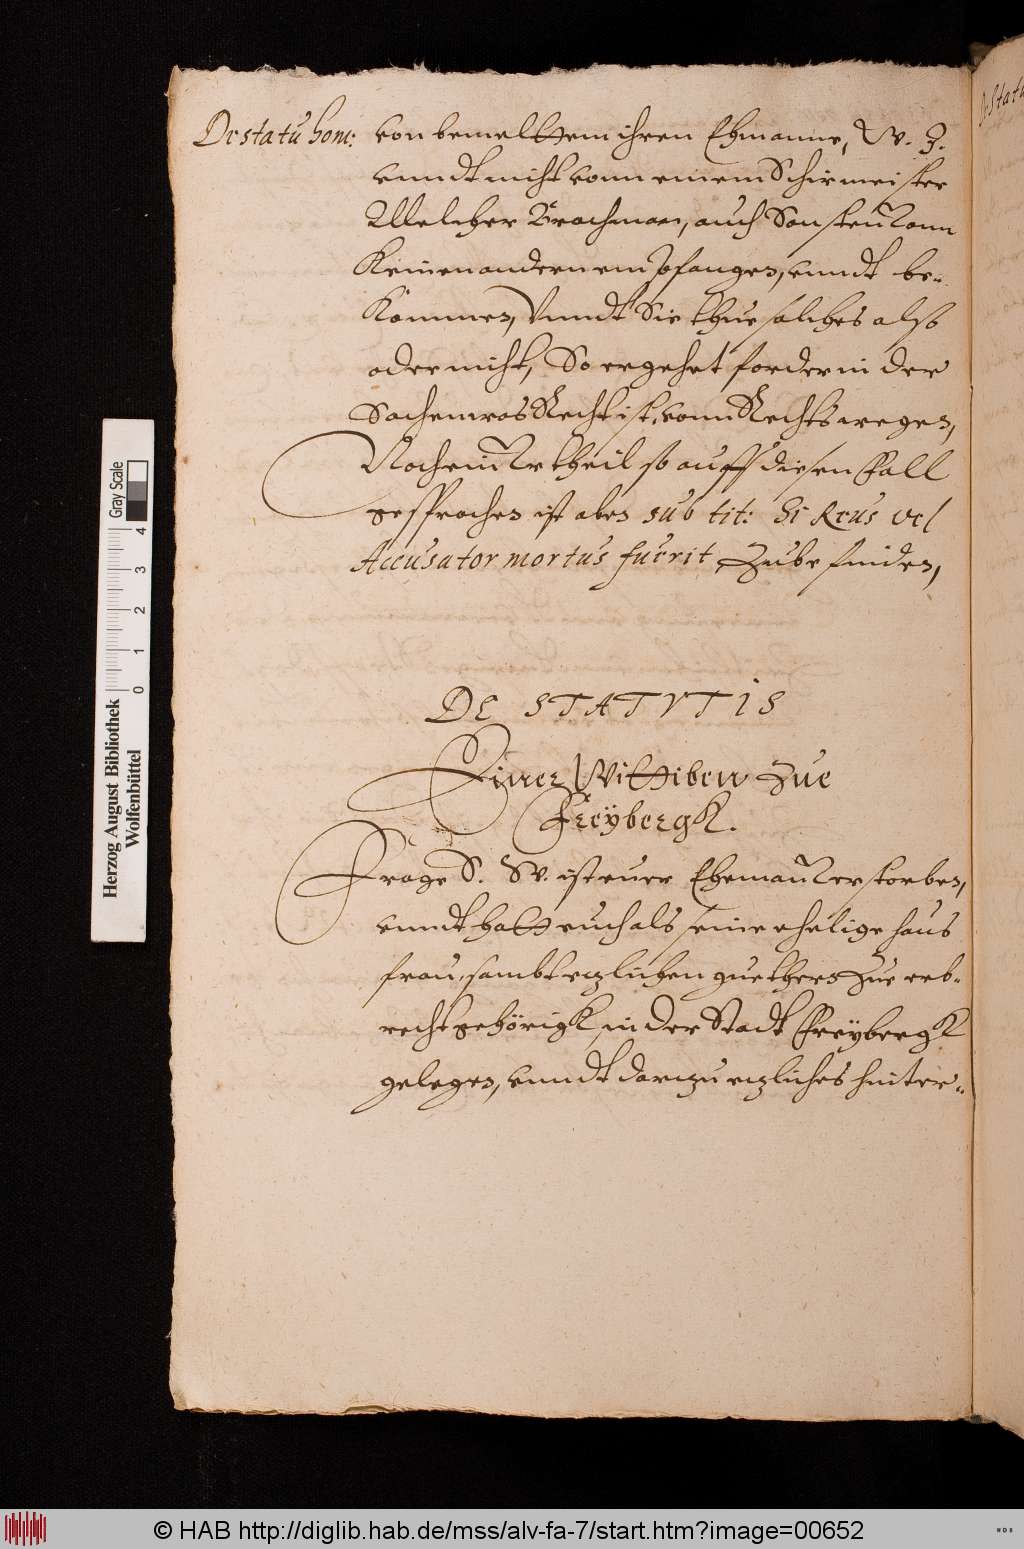 De statu hom:
von bemelttem ihrem Ehmanne, W. Z.
vnndt nicht vonn einem Schirmeister
Melcher Brachman, auch Sonsten vonn
Keinen andern empfangen, vnndt be-
Kommen, Vnndt Sie thue solches also
oder nicht, So ergehet forder in der
Sachen was Recht ist, vonn Rechts wegen,
Noch ein Vrtheil so auff diesen Fall
gesprochen ist aben sub tit: Si Reus vel
Accusator mortus fuerit zubefinden,
DE STATVTIS
Einer Wittiben Zue
Freÿbergk.
Frage S. W. ist euer Eheman verstorben,
vnndt hatt euch als seine ehelige haus
frau, sambt etzlichen guethern Zue erb-
recht gehörigk, in der Stadt Freÿbergk
gelegen, vnndt darzu etzliches hinter-
Herzog August Bibliothek
Wolfenbüttel
Gray Scale
0 1 2 3 4
© HAB http://diglib.hab.de/mss/alv-fa-7/start.htm?image=00652